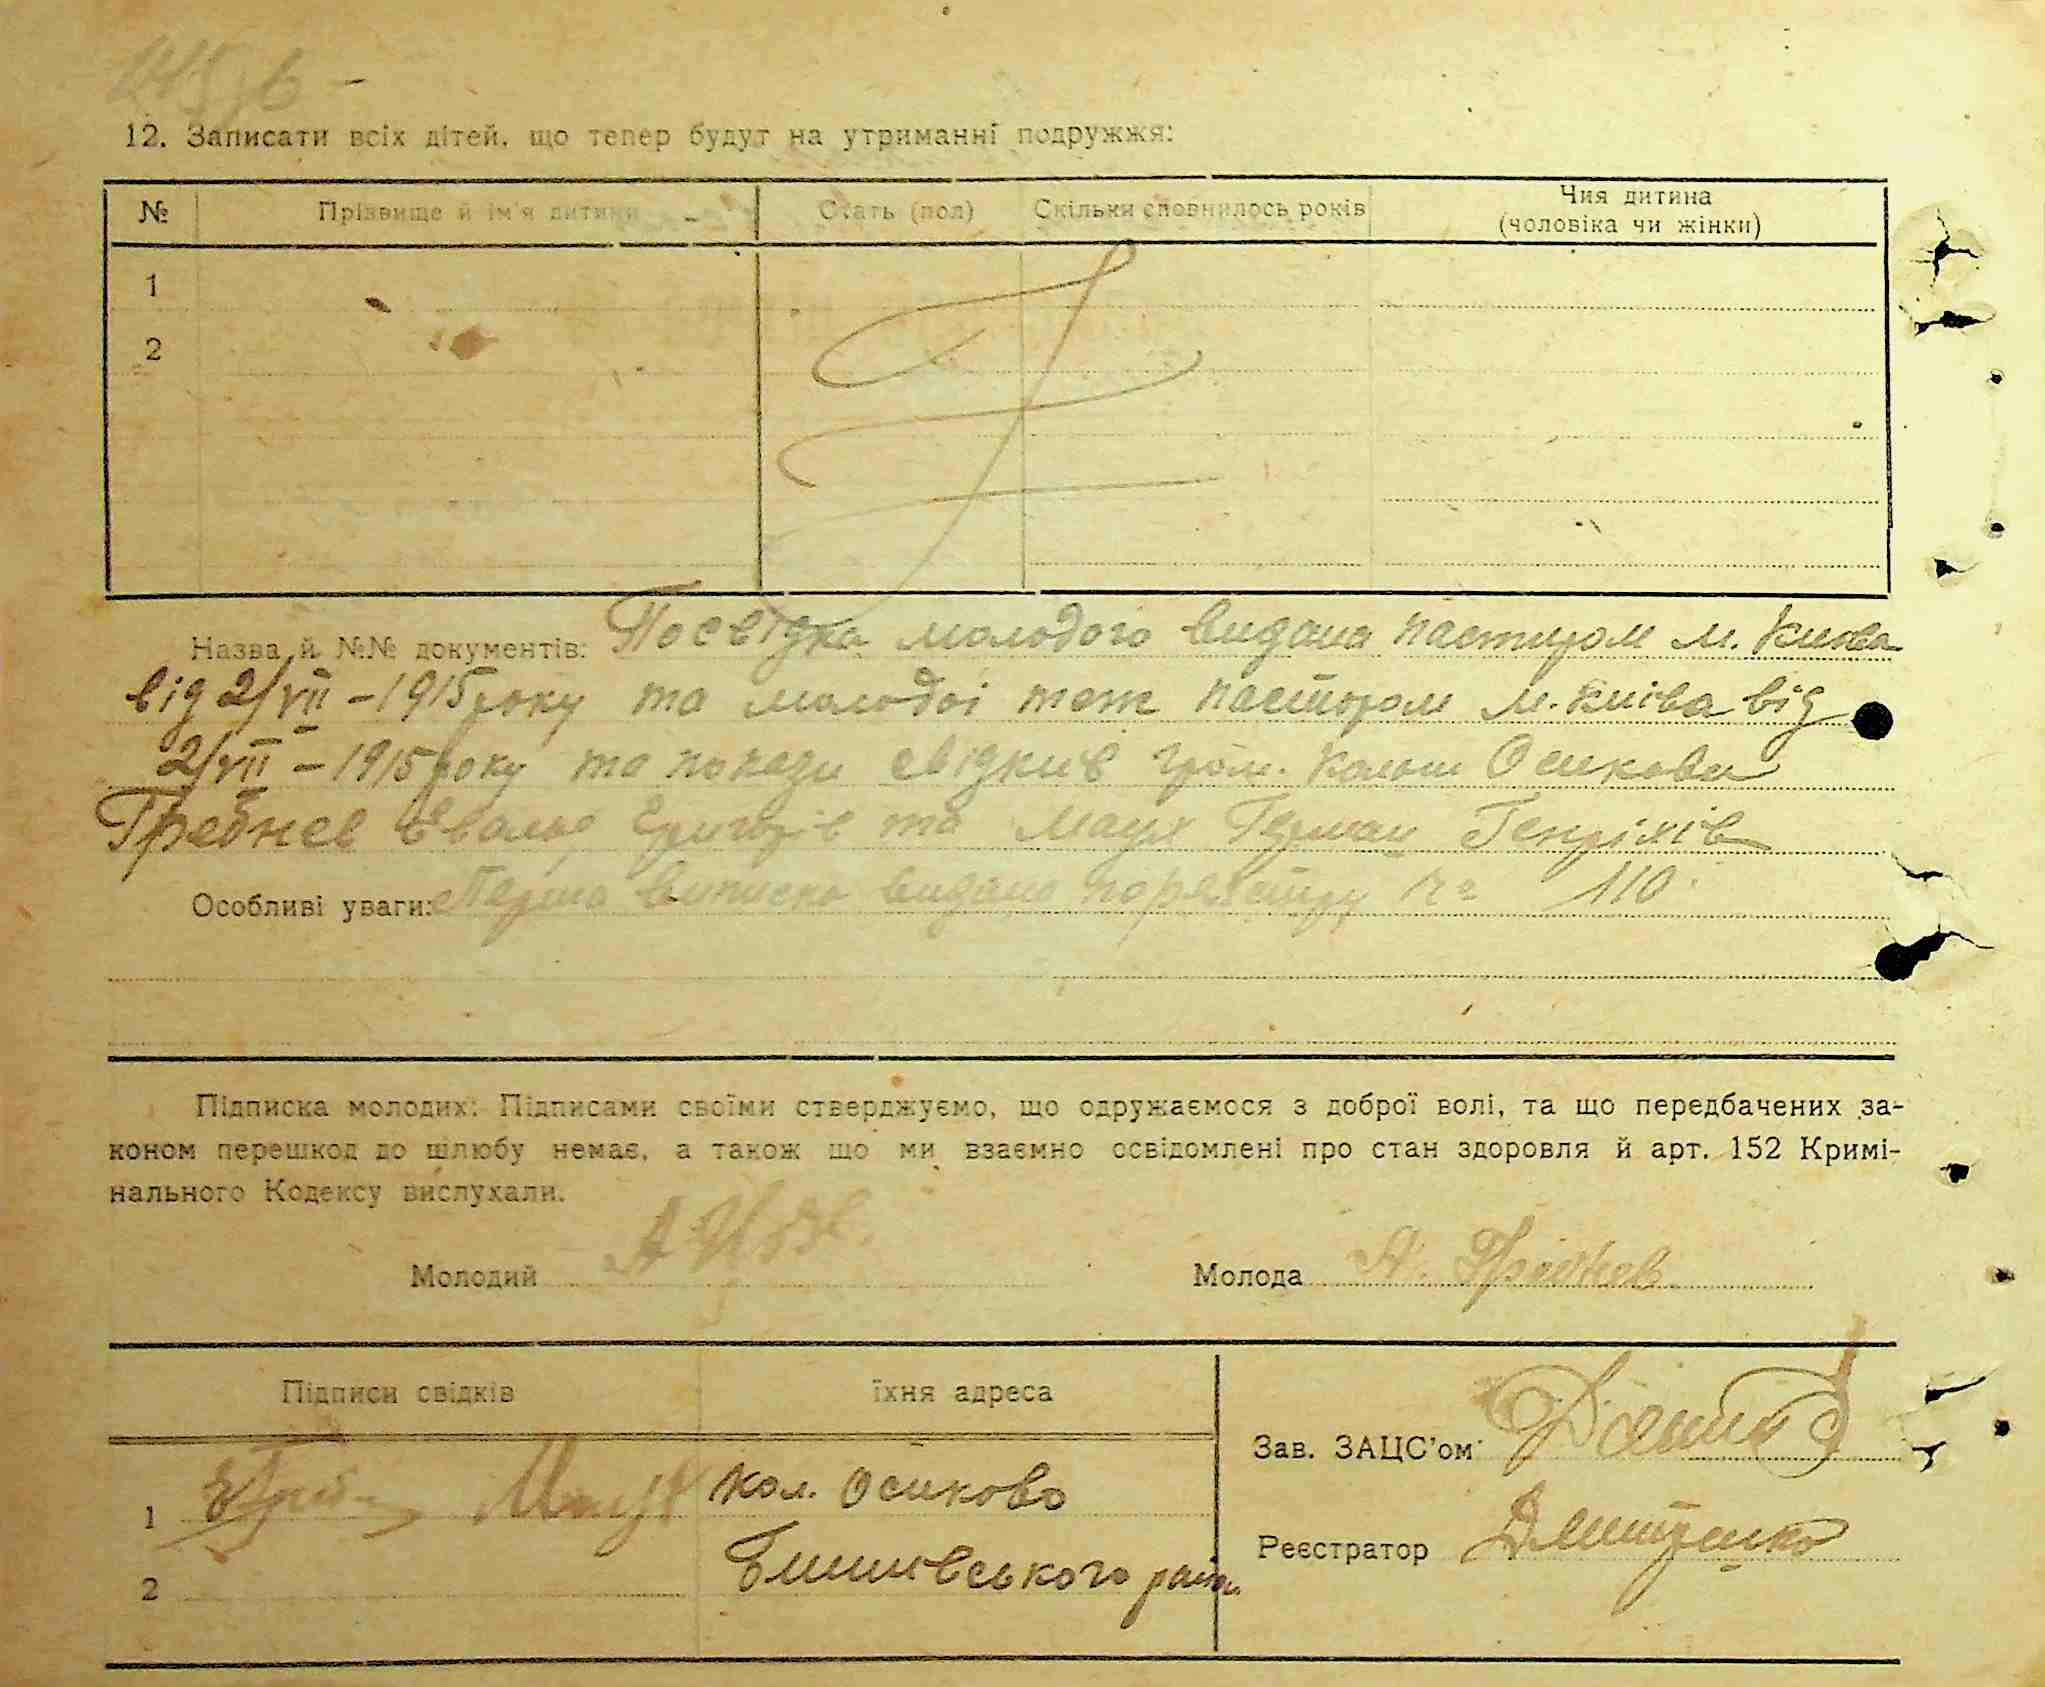 12. Записати всіх дітей, що тепер будут на утриманні подружжя:
№ Прізвище й ім'я дитини Стать (пол) Скільки сповнилось років Чия дитина (чоловіка чи жінки)
1
2
Назва й №№ документів: Посвідка молодого видана пастиром м. Києва
від 2/VII – 1915 року та молодої теж пастором м. Київа від
2/VII – 1915 року та покази свідків гром. Осикови
Гребнев Евальд та Герман Генріхів
Особливі уваги: Перша виписка видана по реєстру № 110
Підписка молодих: Підписами своїми стверджуємо, що одружаємося з доброї волі, та що передбачених за-
коном перешкод до шлюбу немає, а також що ми взаємно освідомлені про стан здоровля й арт. 152 Кримі-
нального Кодексу вислухали.
Молодий Молода А. Гребнев
Підписи свідків їхня адреса
Зав. ЗАЦС'ом
1 кол. Осиково
Реєстратор Дмитренко
2 району